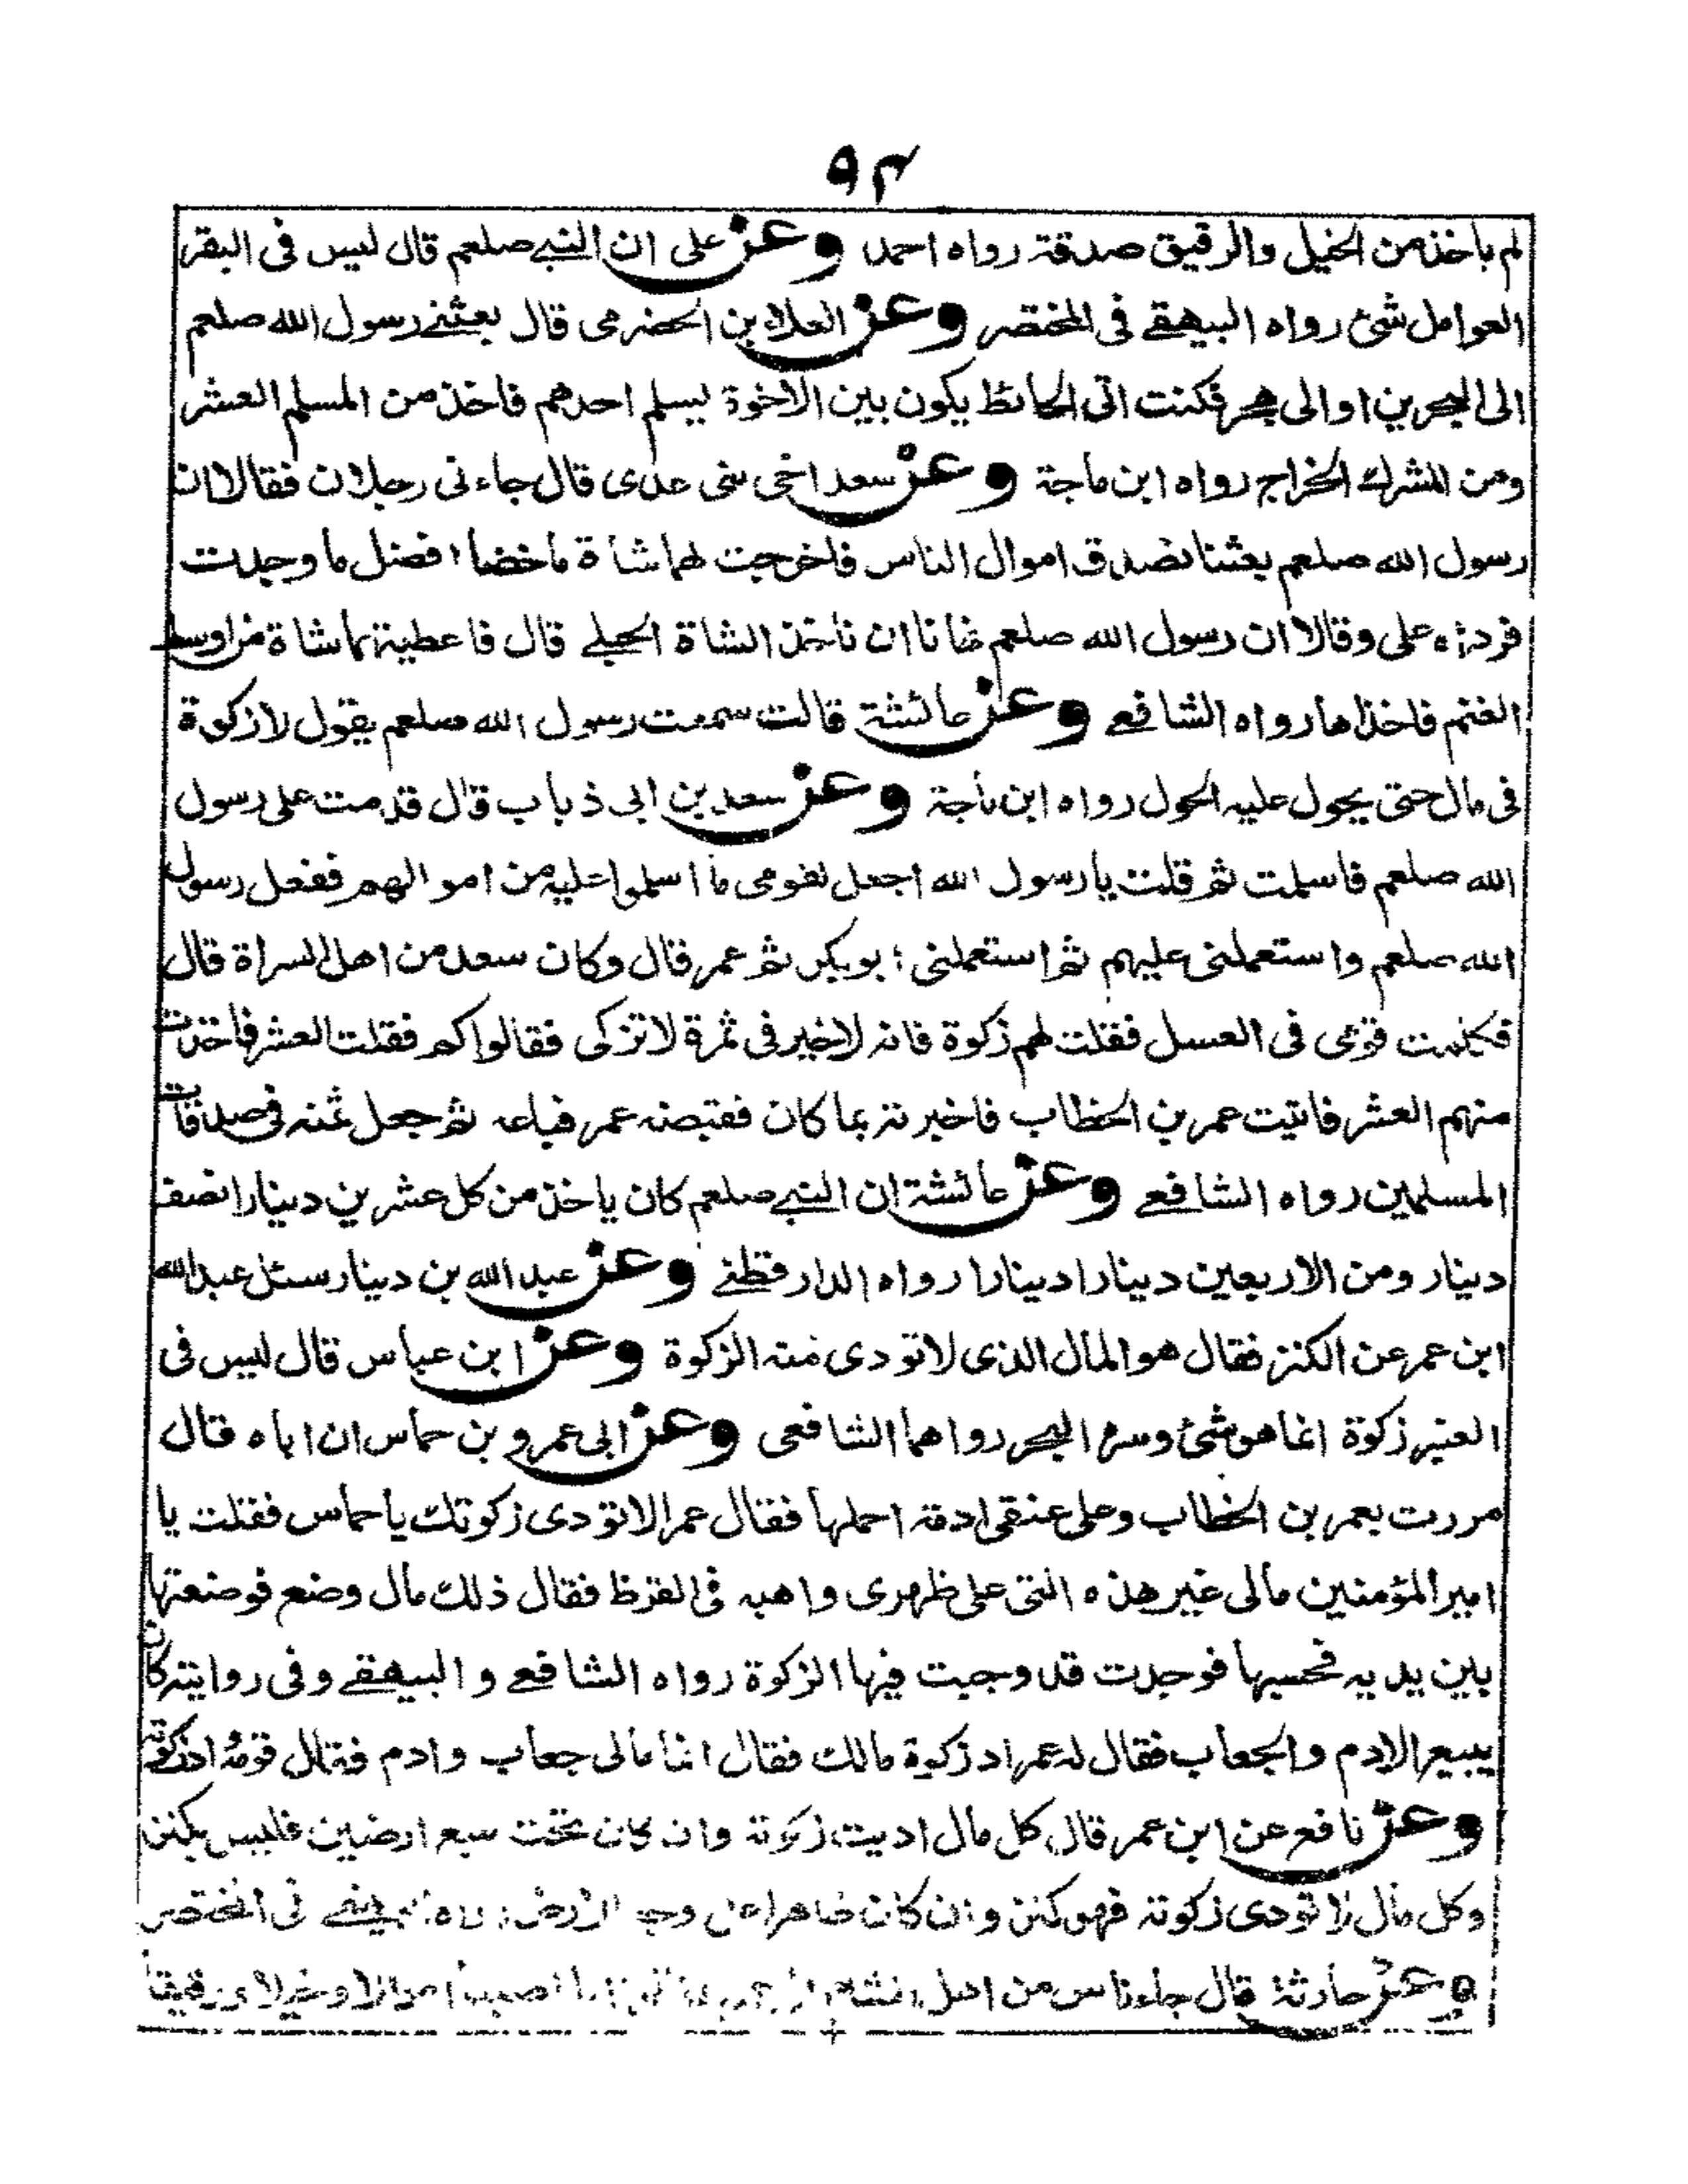 ٩٤
لم ياخذ من الخيل والرقيق صدقة رواه احمد وعن على ان النبي صلعم قال ليس فى البقر
العوامل شئ رواه البيهقي فى المختصر وعن العلاء بن الحضرمى قال بعثني رسول الله صلعم
الى البحرين او الى هجر فكنت اتى الحائط يكون بين الاخوة يسلم احدهم فاخذ من المسلم العشر
ومن المشرك الخراج رواه ابن ماجة وعن سعد اخى بنى عدى قال جاءنى رجلان فقالا ان
رسول الله صلعم بعثنا نصدق اموال الناس فاخرجت لهما شاة ماخضا افضل ما وجدت
فرداه على وقالا ان رسول الله صلعم نهانا ان ناخذ الشاة الحبلے قال فاعطيتهما شاة من اوسط
الغنم فاخذاها رواه الشافعے وعن عائشة قالت سمعت رسول الله صلعم يقول لا زكوة
فى مال حتى يحول عليه الحول رواه ابن ماجة وعن سعد بن ابى ذباب قال قدمت على رسول
الله صلعم فاسلمت ثم قلت يا رسول الله اجعل لقومى ما اسلموا عليه من اموالهم ففعل رسول
الله صلعم واستعملنى عليهم ثم استعملنى ابو بكر ثم عمر قال وكان سعد من اهل السراة قال
فكلمت قومى فى العسل فقلت لهم زكوة فانه لا خير فى ثمرة لا تزكى فقالوا كم فقلت العشر فاخذت
منهم العشر فاتيت عمر بن الخطاب فاخبرته بما كان فقبضه عمر فباعه ثم جعل ثمنه فى صدقات
المسلمين رواه الشافعے وعن عائشة ان النبے صلعم كان ياخذ من كل عشرين دينارا نصف
دينار ومن الاربعين دينارا دينارا رواه الدار قطنے وعن عبد الله بن دينار سئل عبد الله
ابن عمر عن الكنز فقال هو المال الذى لا تودى منه الزكوة وعن ابن عباس قال ليس فى
العنبر زكوة انما هو شئ دسره البحر رواهما الشافعى وعن ابى عمرو بن حماس ان اباه قال
مررت بعمر بن الخطاب وعلى عنقى ادمة احملها فقال عمر الا تودى زكوتك يا حماس فقلت يا
امير المؤمنين مالى غير هذه التى على ظهرى واهبه فى القرظ فقال ذلك مال وضع فوضعتها
بين يديه فحسبها فوجدت قد وجبت فيها الزكوة رواه الشافعے و البيهقے وفى رواية كان
يبيع الادم والجعاب فقال له عمر اد زكوة مالك فقال انما مالى جعاب وادم فقال قومه اد زكوته
وعن نافع عن ابن عمر قال كل مال اديت زكوته وان كان تحت سبع ارضين فليس بكنز
وكل مال لا تودى زكوته فهو كنز وان كان ظاهرا على وجه الارض رواه البيهقے فى المختصر
وعن حارثة قال جاء ناس من اهل الشام اموالا وخيلا ورقيقا